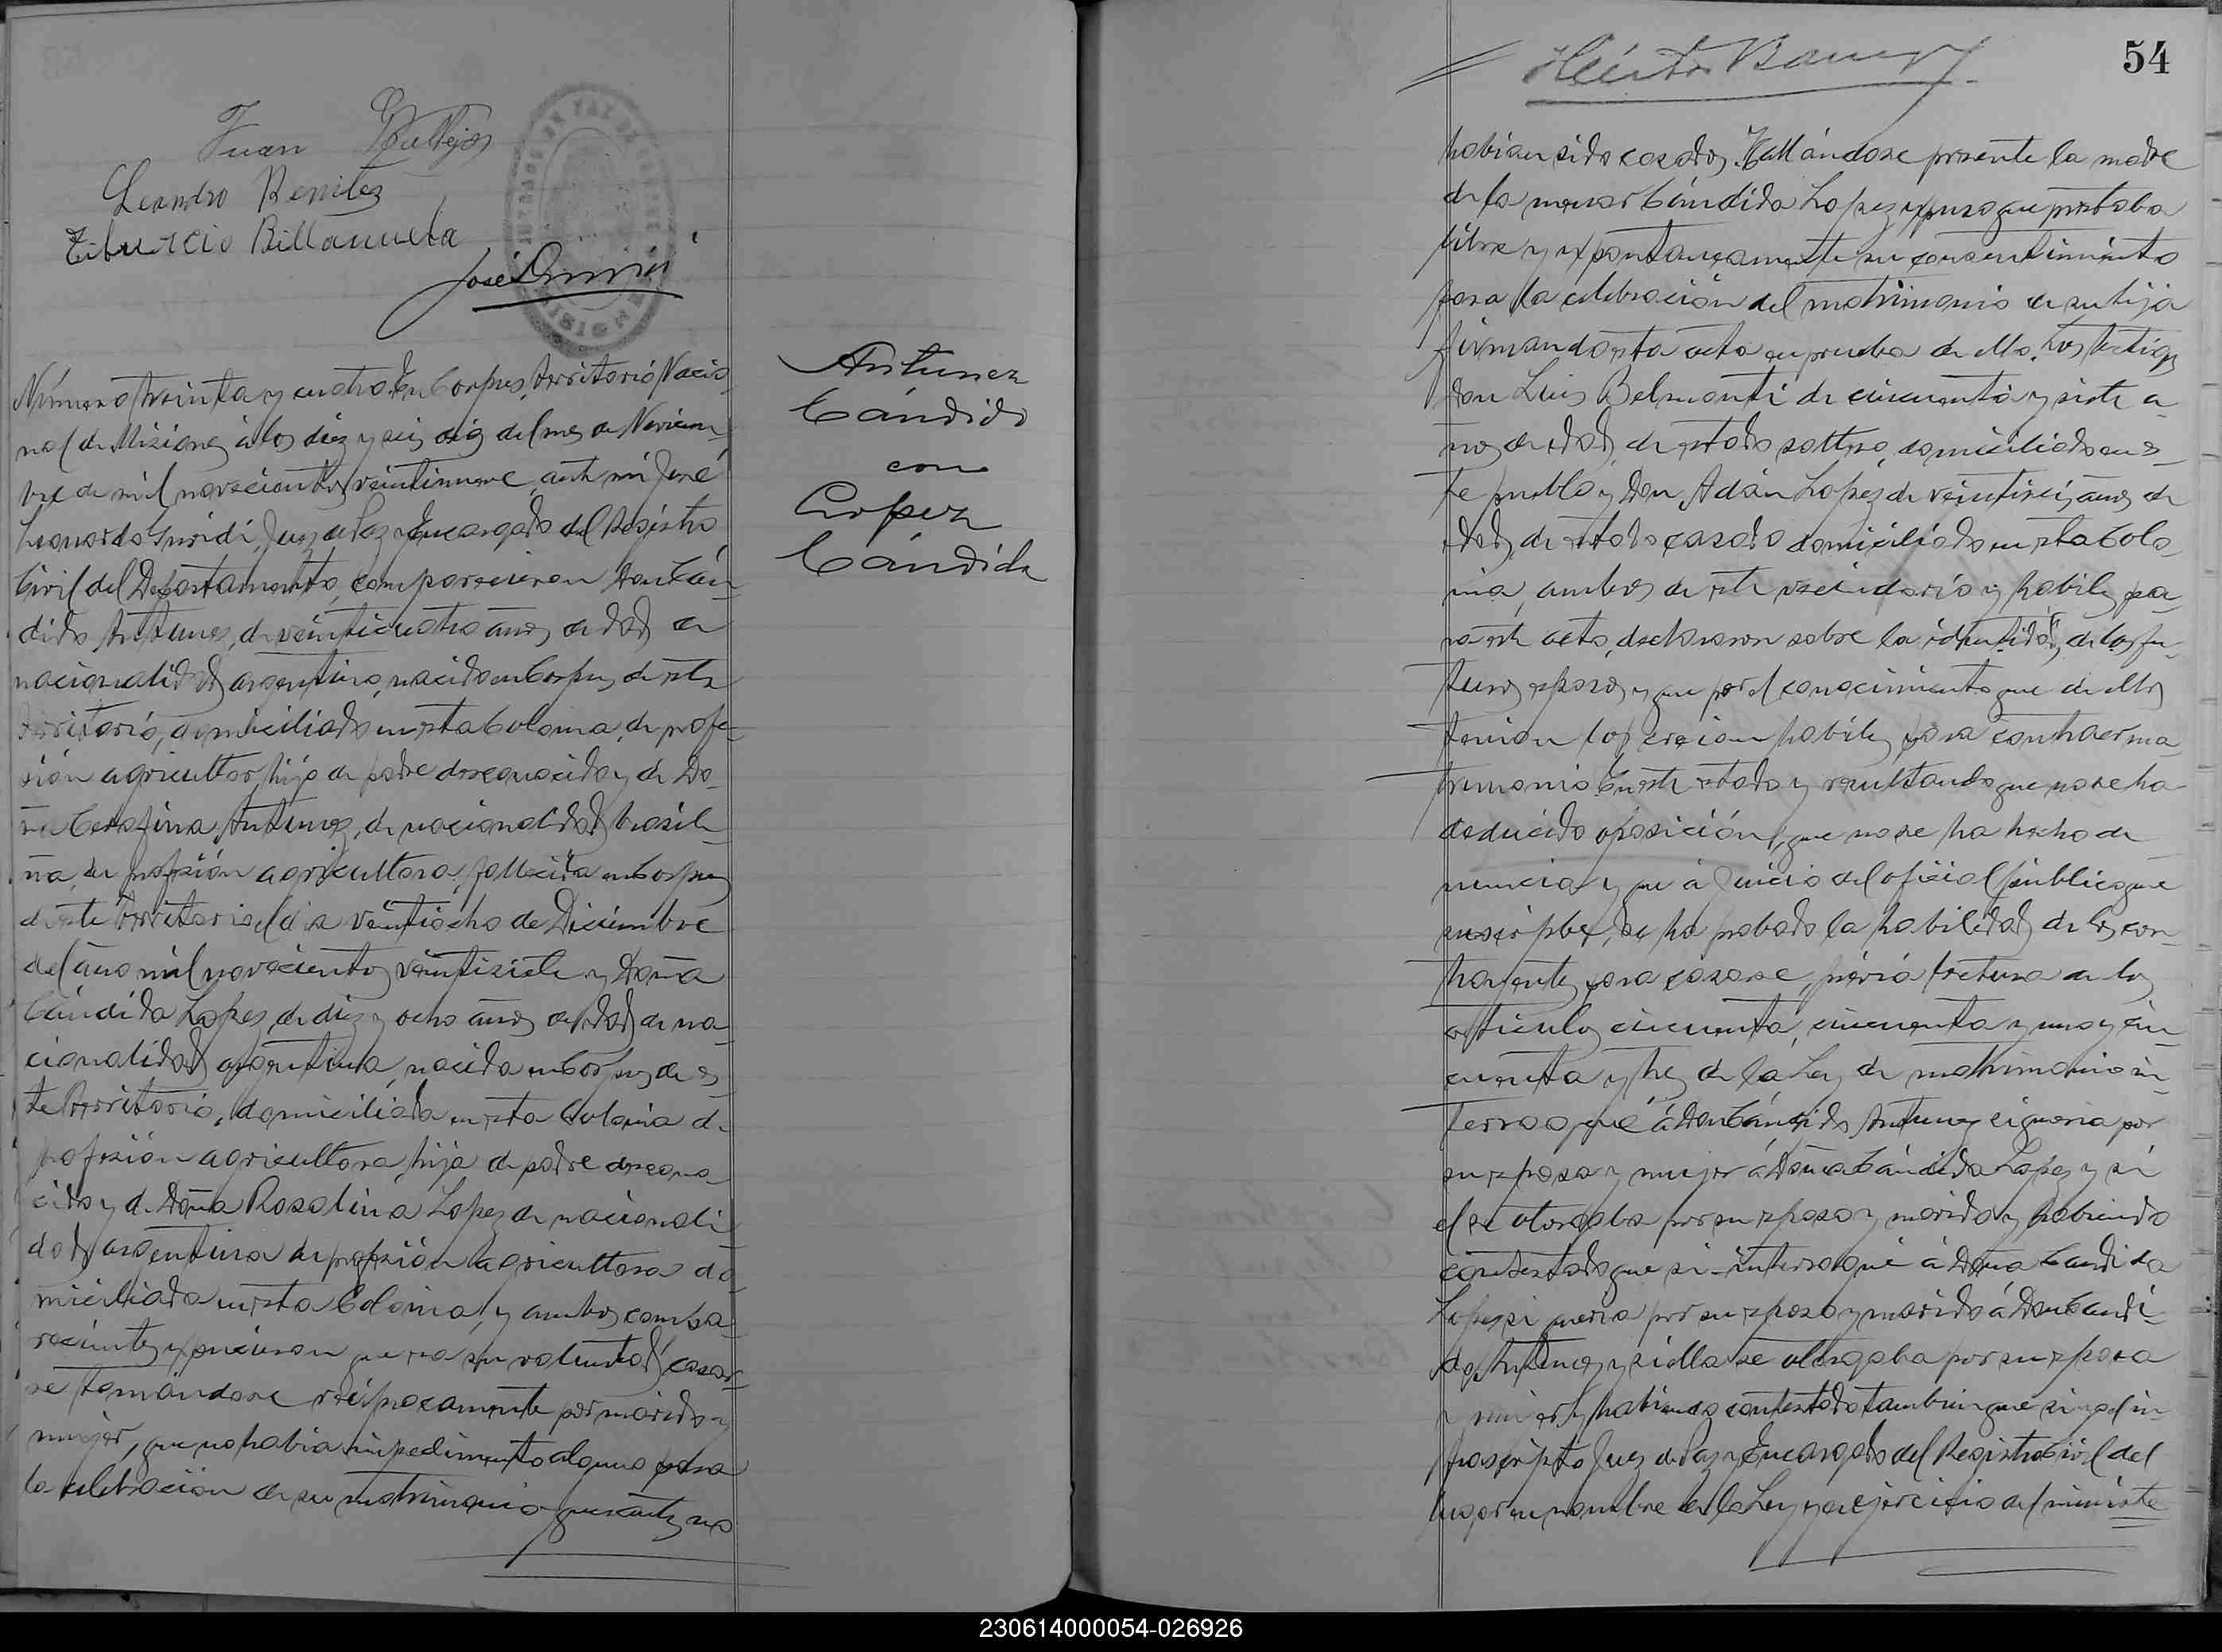 Juan Ballejos
Leandro Benitez
Tiburcio Billanueba
José
Antunez
Cándido
con
Lopez
Cándida
Número treinta y cuatro. En Corpus, territorio Nacio-
nal de Misiones á los diez y seis días del mes de Noviem-
bre de mil novecientos veintinueve, ante mí José
Leonardo Guridi, Juez de Paz y Encargado del Registro
Civil del Departamento, comparecieron Don Cán-
dido Antunez, de veinticuatro años de edad de
nacionalidad argentino, nacido en Corpus, de este
territorio, domiciliado en esta Colonia, de profe-
sión agricultor, hijo de padre desconocido y de Do-
ña Cerafina Antunez, de nacionalidad brasile-
ña, de profesión agricultora, fallecida en Corpus
de este territorio el día veintiocho de Diciembre
del año mil novecientos veintisiete y Doña
Cándida Lopez, de diez y ocho años de edad, de na-
cionalidad argentina, nacida en Corpus, de es-
te territorio, domiciliada en esta Colonia de
profesión agricultora, hija de padre descono-
cido y de Doña Rosalina Lopez de nacionali-
dad argentina de profesión agricultora do-
miciliada en esta Colonia, y ambos compa-
recientes expusieron que era su voluntad casar-
se tomándose recíprocamente por marido y
mujer, que no había impedimento alguno para
la celebración de su matrimonio que antes no
54
habían sido casados. Hallándose presente la madre
de la menor Cándida Lopez expuso que prestaba
libre y expontaneamente su consentimiento
para la celebración del matrimonio de su hija
firmando esta acta en prueba de ello. Los testigos
Don Luis Belmonti de cincuenta y siete a-
ños de edad, de estado soltero, domiciliado en es-
te pueblo y Don Adán Lopez de veintiseis años de
edad, de estado casado domiciliado en esta Colo-
nia, ambos de este vecindario y hábiles pa-
ra este acto, declararon sobre la identidad de los fu-
turos esposos y que por el conocimiento que de ellos
tenían los creían hábiles para contraer ma-
trimonio. En este estado y resultando que no se ha
deducido oposición, que no se ha hecho de-
nuncia y que á juicio del oficial público que
suscribe, se ha probado la habilidad de los con-
trayentes para casarse, previa lectura de los
artículos cincuenta, cincuenta y uno y cin-
cuenta y tres de la Ley de matrimonio in-
terrogué á Don Cándido Antunez si quería por
su esposa y mujer á Doña Cándida Lopez y si
él se otorgaba por su esposo y marido y habiendo
contestado que sí interrogué á Doña Candida
Lopez si quería por su esposo y marido á Don Candi-
do Antunez y si ella se otorgaba por su esposa
y mujer y habiendo contestado tambien que sí yo el in-
frascripto Juez de Paz y Encargado del Registro Civil del
lugar en nombre de la Ley y en ejercicio del ministe-
230614000054-026926